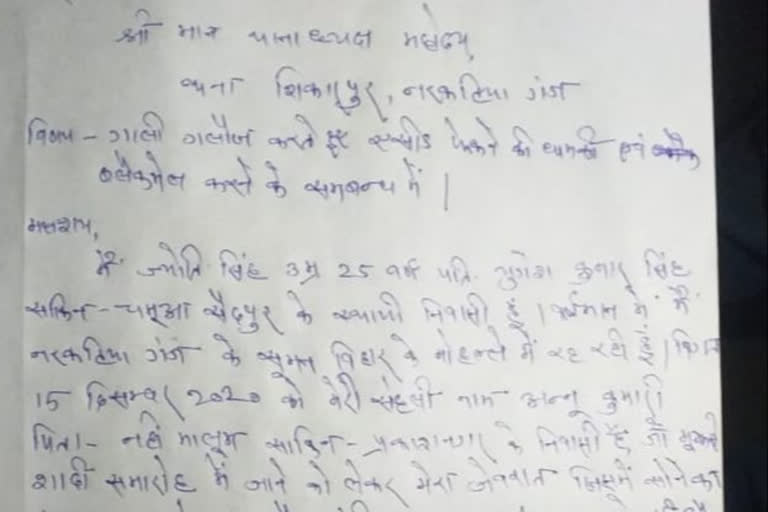 श्री मान थानाध्यक्ष महोदय,
थाना शिकारपुर, नरकटिया गंज
विषय - गाली गलौज करते हुए एसीड फेकने की धमकी एवं
ब्लैकमेल करने के सम्बन्ध में |
महाशय,
मैं ज्योति सिंह उम्र 25 वर्ष पति कुमार सिंह
साकिन - सैदपुर के स्थायी निवासी हूँ | वर्तमान में मैं
नरकटिया गंज के सुमन विहार के मोहल्ले में रह रही हूँ |
15 दिसम्बर 2020 को मेरी सहेली नाम अन्नू कुमारी
पिता - नहीं मालूम साकिन - प्रकाशनगर के निवासी है जो मुझसे
शादी समारोह में जाने को लेकर मेरा जेवरात जिसमें सोने का